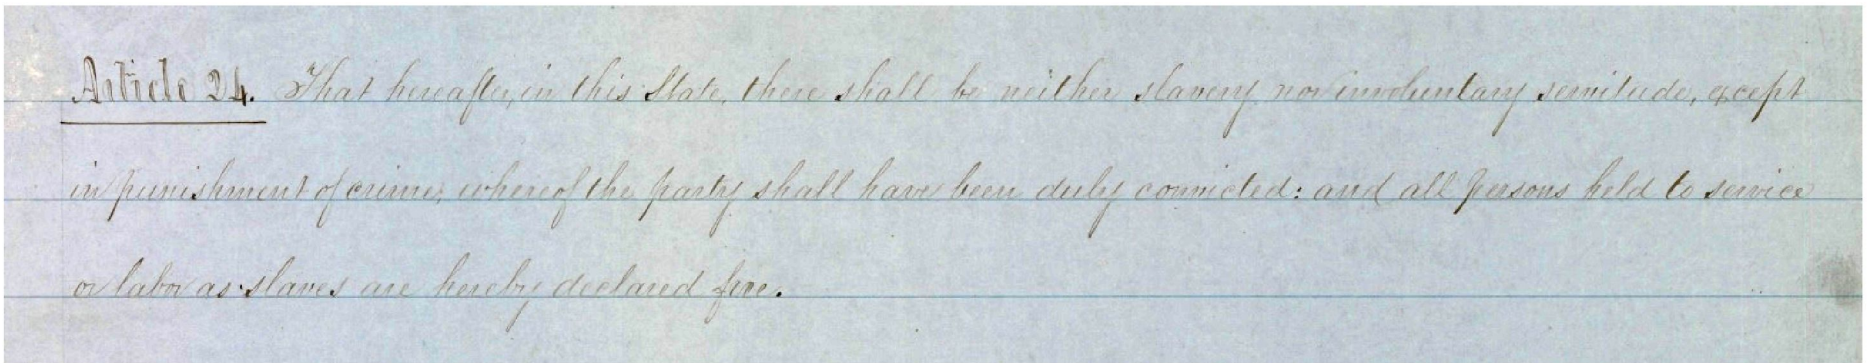 Article 24. That hereafter, in this State, there shall be neither slavery nor involuntary servitude, except
in punishment of crime, whereof the party shall have been duly convicted: and all persons held to service
or labor as slaves are hereby declared free.